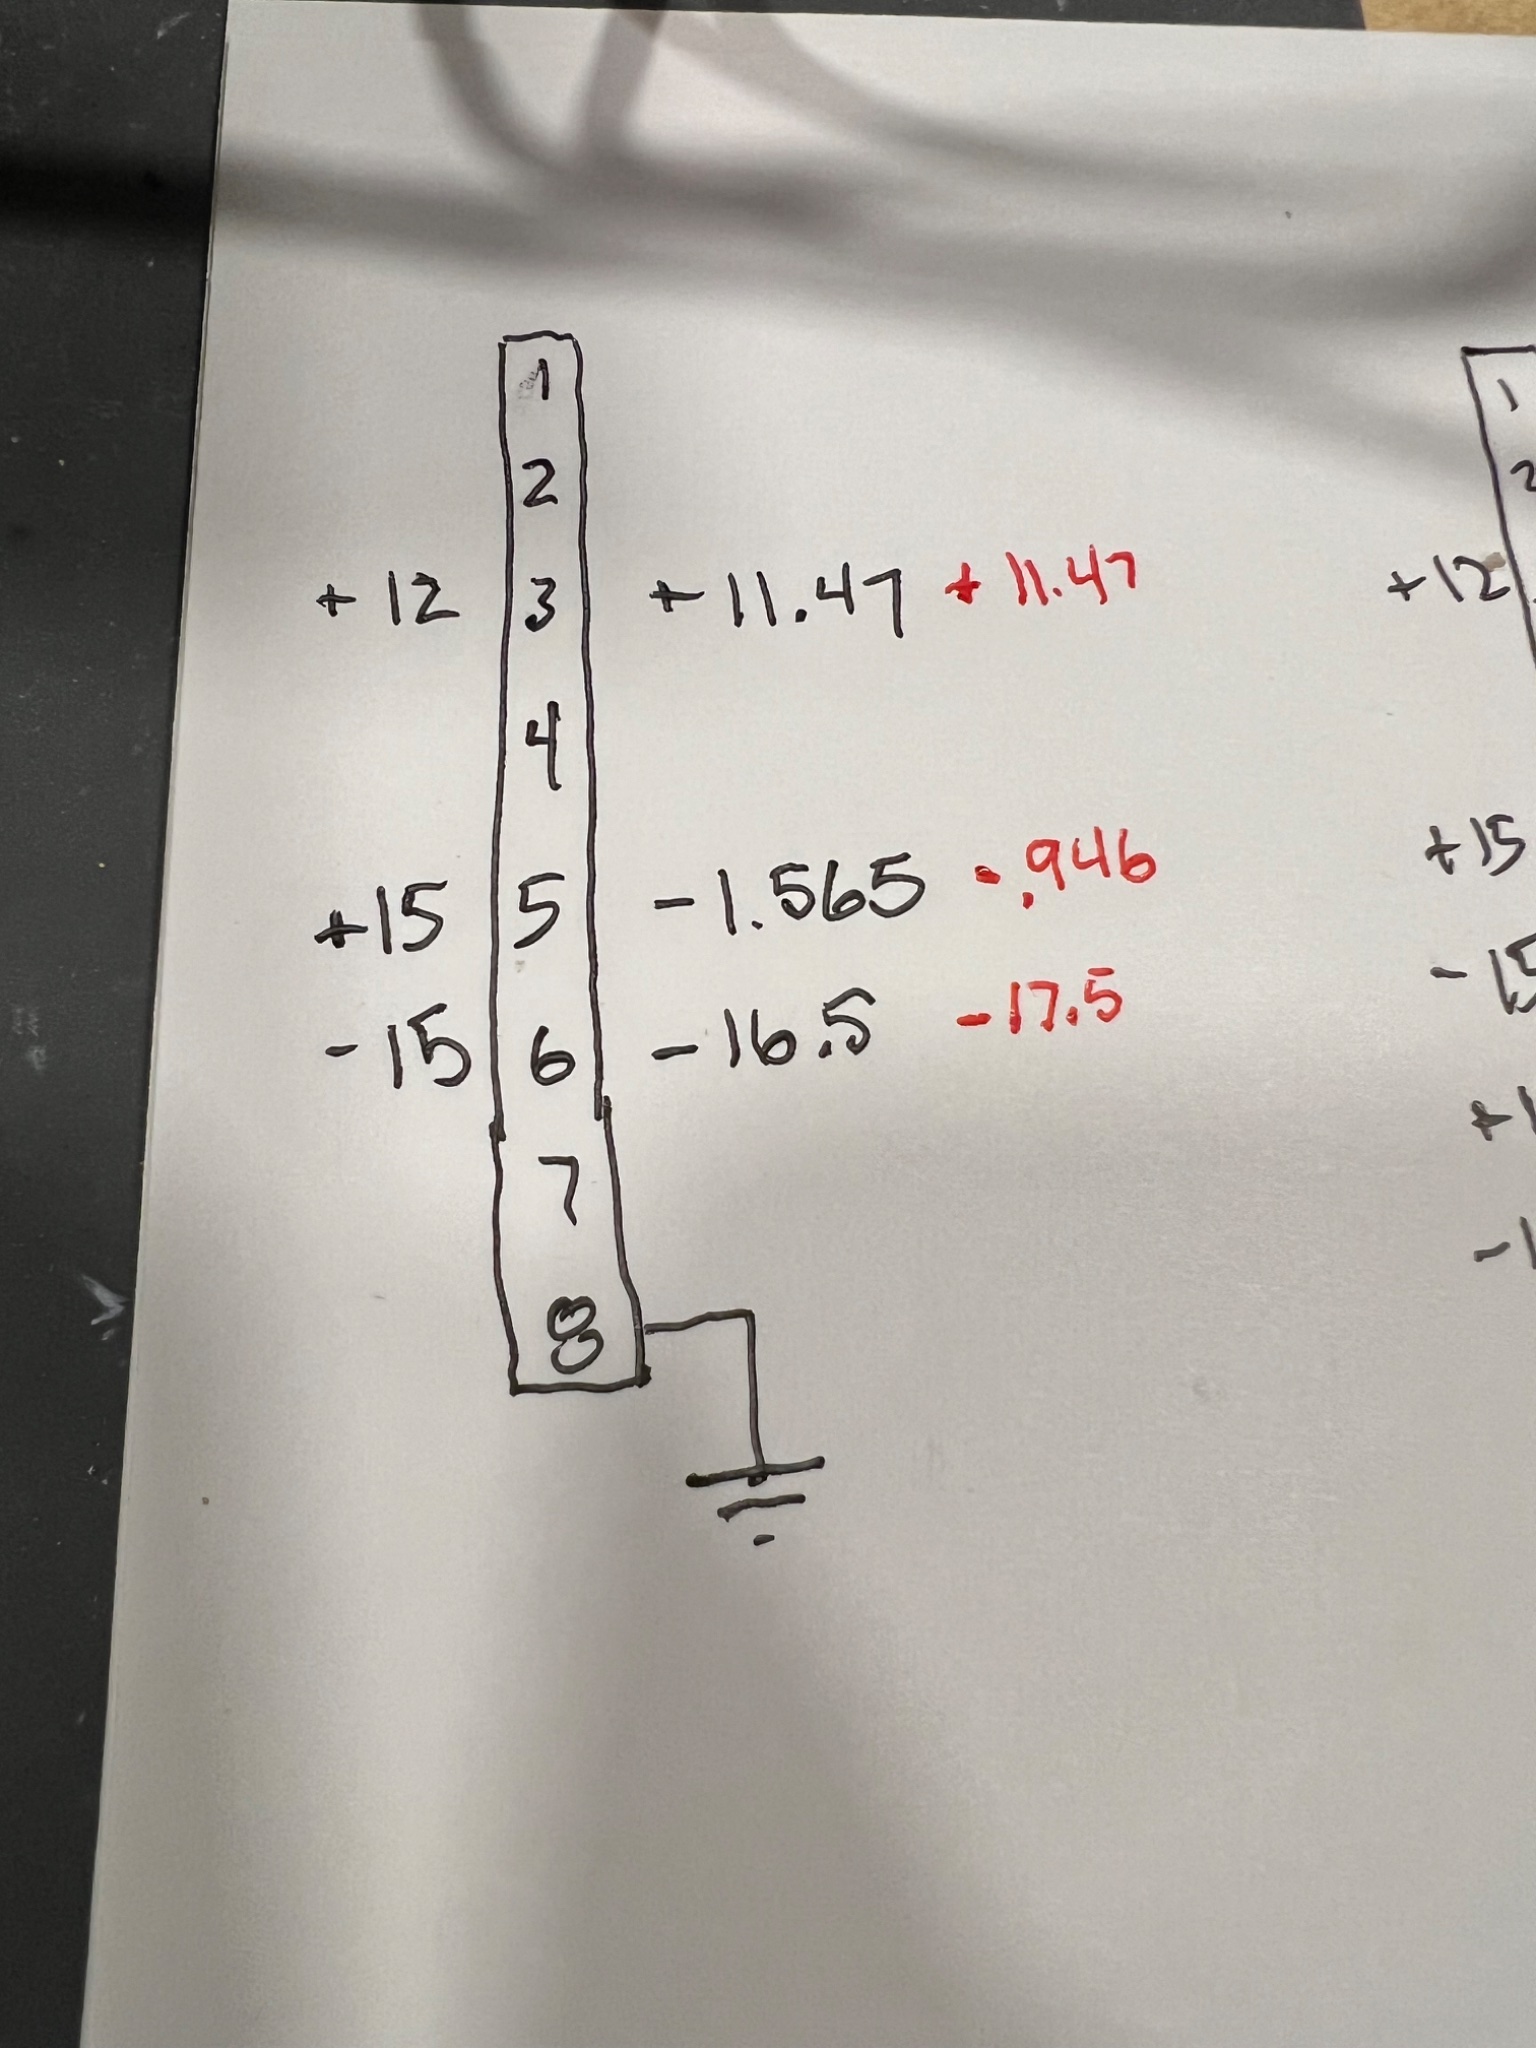 1
1
2
2
+12 3 +11.47 +11.47
+12
4
+15 5 -1.565 -.946
+15
-15 6 -16.5 -17.5
-15
7
8